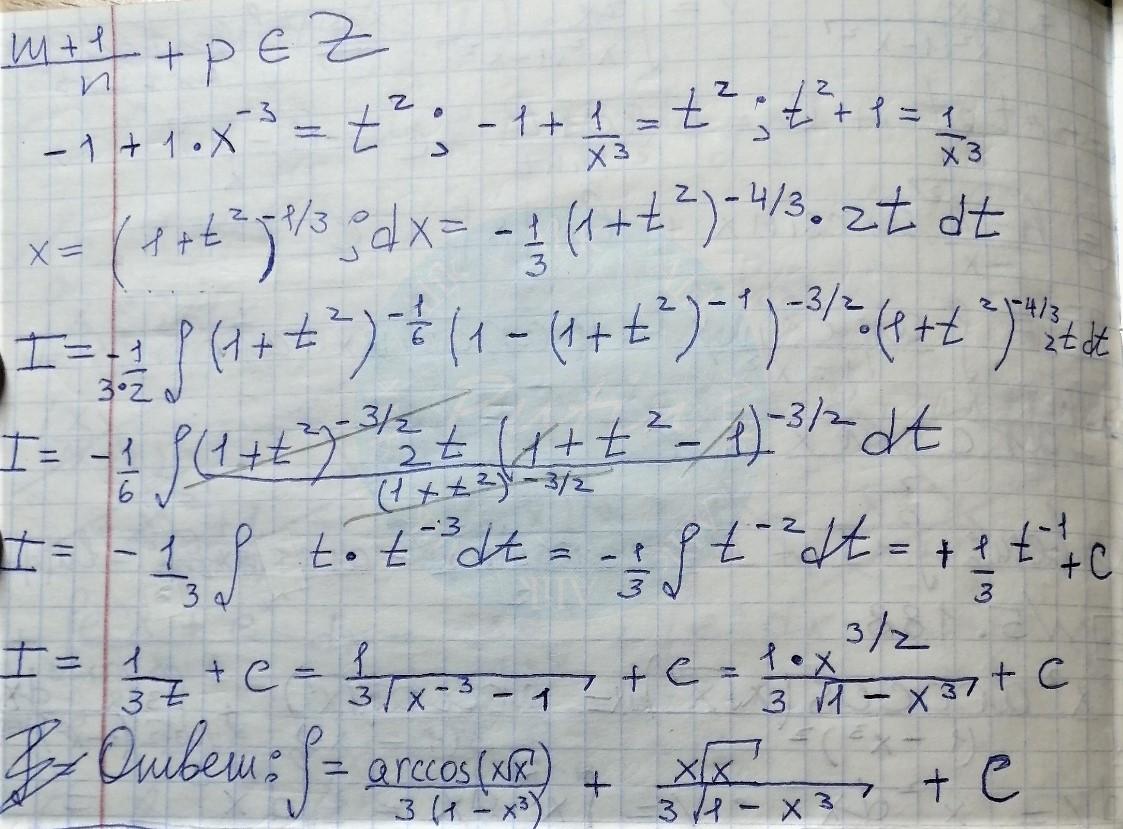 (m+1)/n + p ∈ Z
-1 + 1·x^(-3) = t²; -1 + 1/x³ = t²; t² + 1 = 1/x³
x = (1+t²)^(-1/3); dx = -1/3 (1+t²)^(-4/3) · 2t dt
I = -1/(3·2) ∫ (1+t²)^(-1/6) (1-(1+t²)^(-1))^(-3/2) · (1+t²)^(-4/3) 2t dt
I = -1/6 ∫ (1+t²)^(-3/2) 2t (1+t²-1)^(-3/2) / (1+t²)^(-3/2) dt
I = -1/3 ∫ t · t^(-3) dt = -1/3 ∫ t^(-2) dt = +1/3 t^(-1) + C
I = 1/(3t) + C = 1/(3√(x^(-3) - 1)) + C = 1·x^(3/2)/(3√(1-x³)) + C
Ответ: ∫ = arccos(x√x)/(3(1-x³)) + x√x/(3√(1-x³)) + C